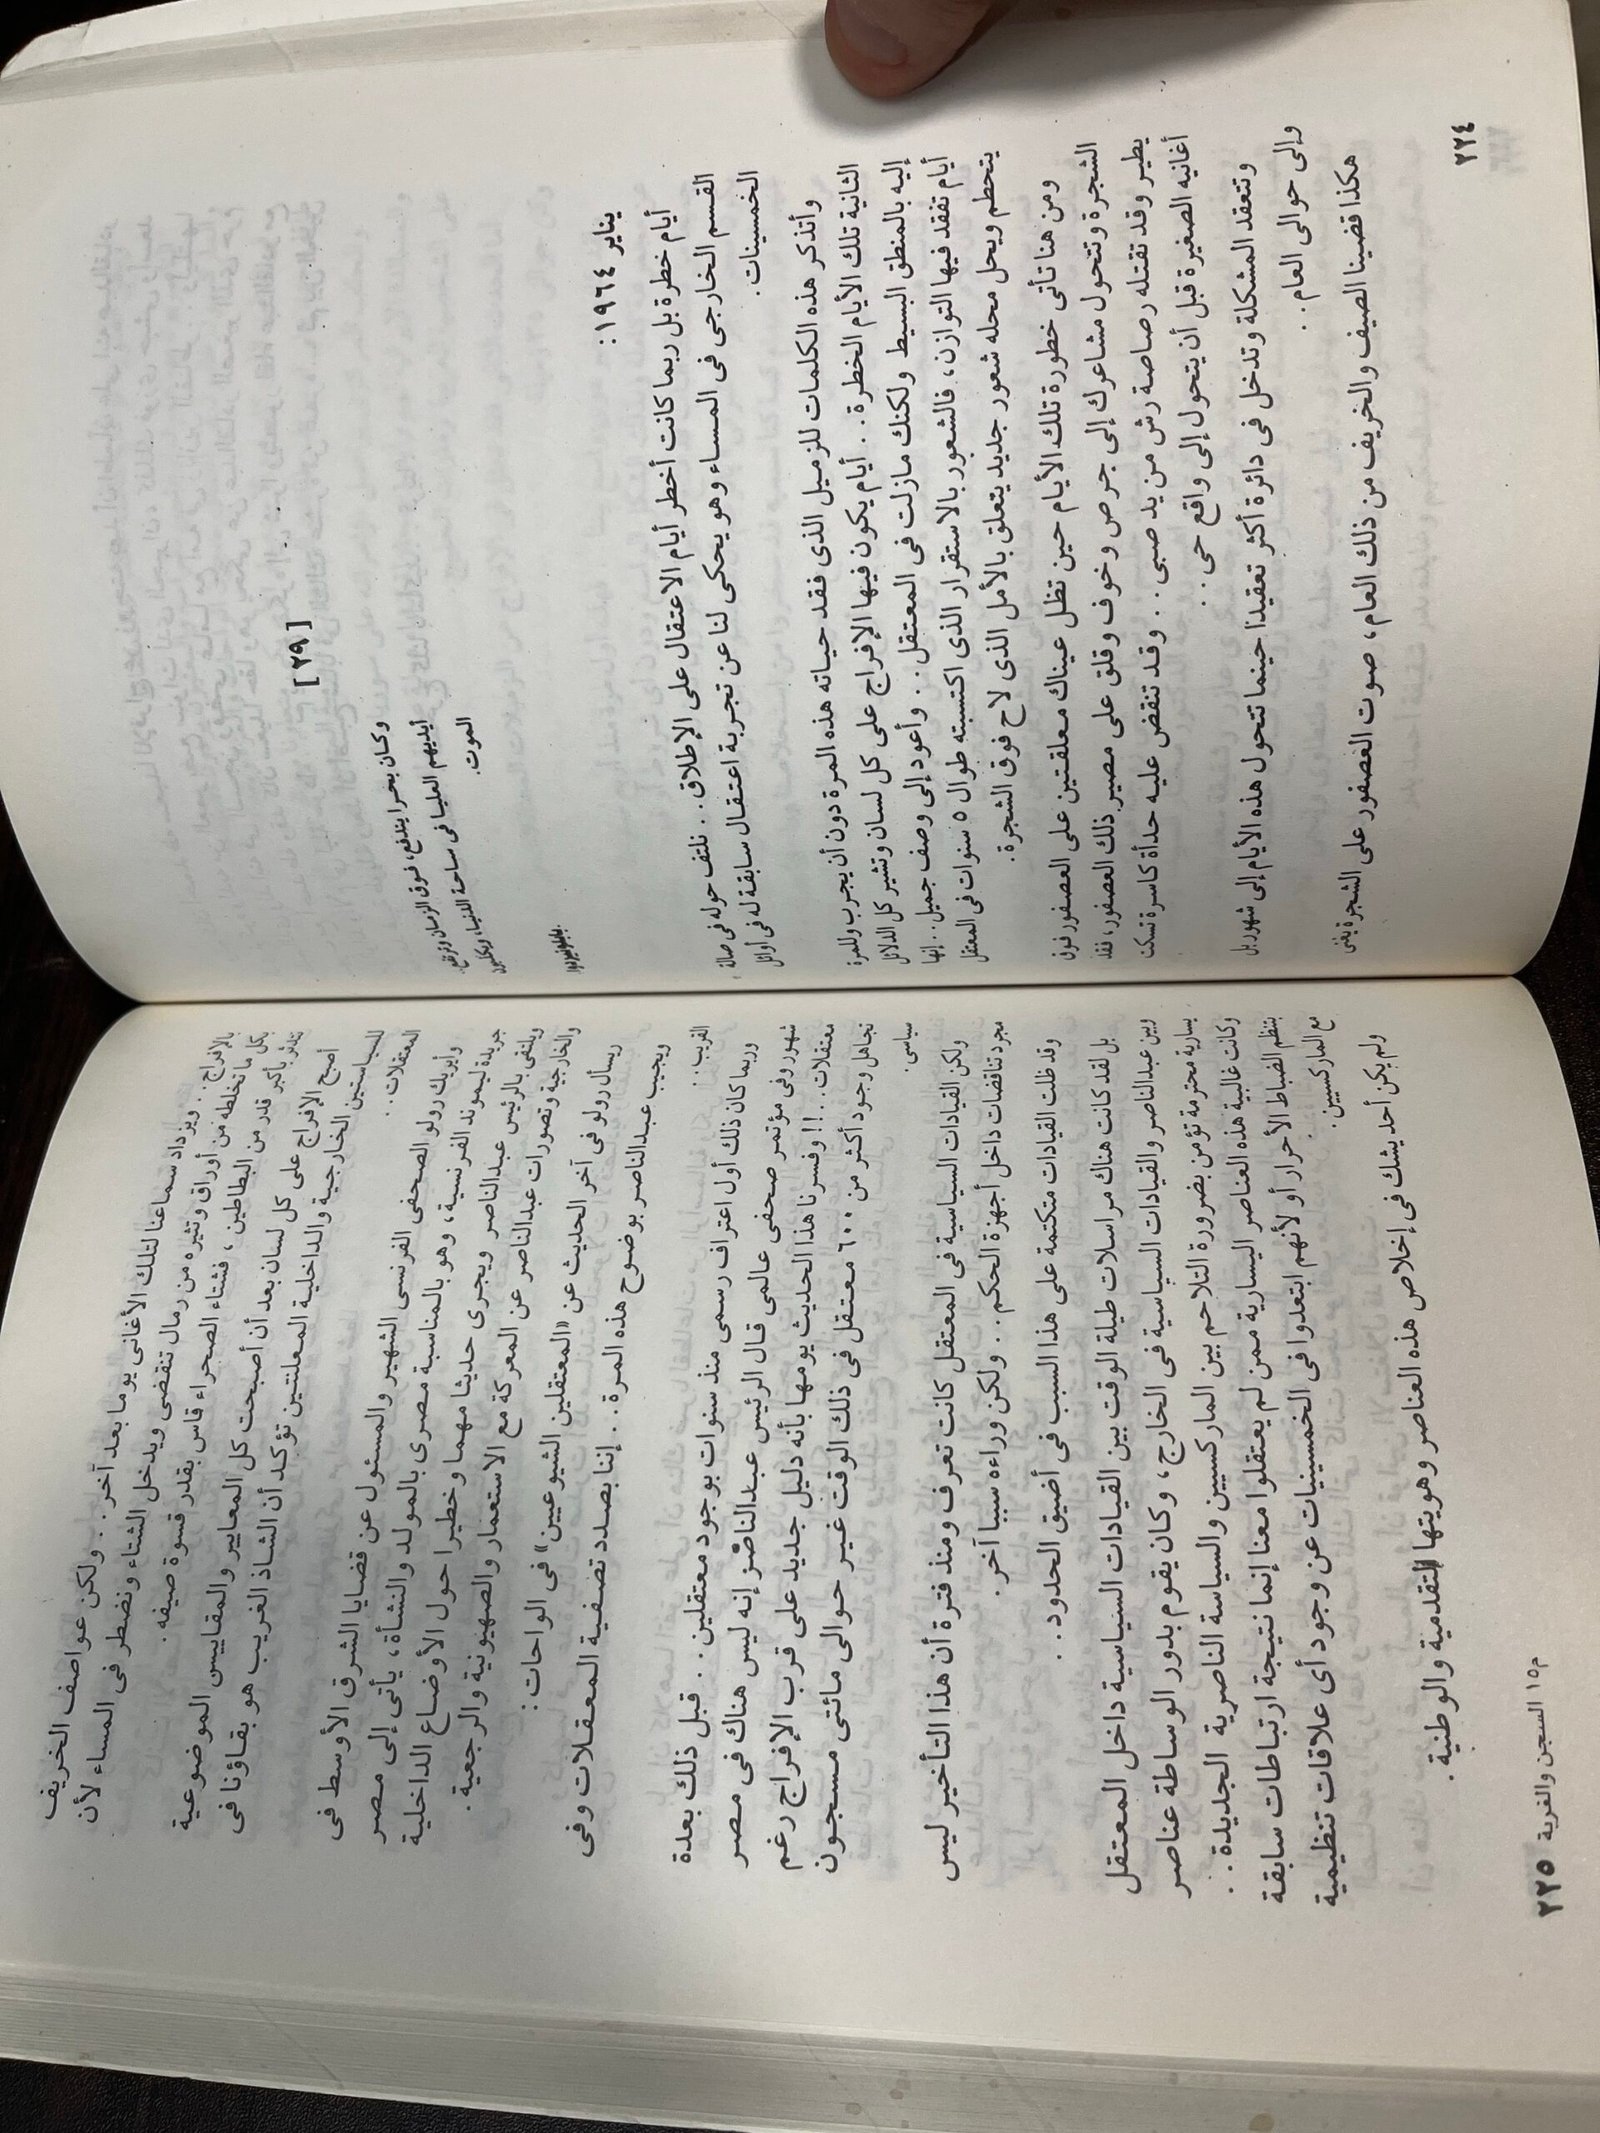 [٢٩]
وكان بحرا يندفع، فوق الزمان وترتفع،
أيديهم العليا فى ساحة الدنيا، ويكلمون
الموت.
بابلو نيرودا
يناير ١٩٦٤:
أيام خطرة بل ربما كانت أخطر أيام الاعتقال على الإطلاق.. نلتف حوله فى صالة
القسم الخارجى فى المساء وهو يحكى لنا عن تجربة اعتقال سابقة له فى أوائل
الخمسينات.
وأتذكر هذه الكلمات للزميل الذى فقد حياته هذه المرة دون أن يجرب وللمرة
الثانية تلك الأيام الخطرة.. أيام يكون فيها الإفراج على كل لسان وتشير كل الدلائل
إليه بالمنطق البسيط ولكنك مازلت فى المعتقل.. وأعود إلى وصف جميل.. إنها
أيام تفقد فيها التوازن، فالشعور بالاستقرار الذى اكتسبته طوال ٥ سنوات فى المعتقل
يتحطم ويحل محله شعور جديد يتعلق بالأمل الذى لاح فوق الشجرة.
ومن هنا تأتى خطورة تلك الأيام حين تظل عيناك معلقتين على العصفور فوق
الشجرة وتتحول مشاعرك إلى جرص وخوف وقلق على مصير ذلك العصفور، فقد
يطير وقد تقتله رصاصة رش من يد صبى.. وقد تنقض عليه حدأة كاسرة تسكت
أغانيه الصغيرة قبل أن يتحول إلى واقع حى..
وتتعقد المشكلة وتدخل فى دائرة أكثر تعقيدا حينما تتحول هذه الأيام إلى شهور بل
وإلى حوالى العام..
هكذا قضينا الصيف والخريف من ذلك العام، صوت العصفور على الشجرة يغنى
٢٢٤
بالإفراج.. ويزداد سماعنا لتلك الأغانى يوما بعد آخر.. ولكن عواصف الخريف
بكل ما تخلطه من أوراق وتثيره من رمال تنقضى ويدخل الشتاء ونضطر فى المساء لأن
نتدثر بأكبر قدر من البطاطين، فشتاء الصحراء قاس بقدر قسوة صيفه.
أصبح الإفراج على كل لسان بعد أن أصبحت كل المعايير والمقاييس الموضوعية
للسياستين الخارجية والداخلية المعلنتين تؤكد أن الشاذ الغريب هو بقاؤنا فى
المعتقلات..
وأيريك رولو الصحفى الفرنسى الشهير والمسئول عن قضايا الشرق الأوسط فى
جريدة ليموند الفرنسية، وهو بالمناسبة مصرى بالمولد والنشأة، يأتى إلى مصر
ويلتقى بالرئيس عبدالناصر ويجرى حديثا مهما وخطيرا حول الأوضاع الداخلية
والخارجية وتصورات عبدالناصر عن المعركة مع الاستعمار والصهيونية والرجعية.
ويسأل رولو فى آخر الحديث عن «المعتقلين الشيوعيين» فى الواحات:
ويجيب عبدالناصر بوضوح هذه المرة.. إننا بصدد تصفية المعتقلات وفى
القريب..
وربما كان ذلك أول اعتراف رسمى منذ سنوات بوجود معتقلين.. قبل ذلك بعدة
شهور وفى مؤتمر صحفى عالمى قال الرئيس عبدالناصر إنه ليس هناك فى مصر
معتقلات..!! وفسرنا هذا الحديث يومها بأنه دليل جديد على قرب الإفراج رغم
تجاهل وجود أكثر من ٦٠٠ معتقل فى ذلك الوقت غير حوالى مائتى مسجون
سياسى.
ولكن القيادات السياسية فى المعتقل كانت تعرف ومنذ فترة أن هذا التأخير ليس
مجرد تناقضات داخل أجهزة الحكم.. ولكن وراءه سببا آخر.
وقد ظلت القيادات متكتمة على هذا السبب فى أضيق الحدود..
بل لقد كانت هناك مراسلات طيلة الوقت بين القيادات السياسية داخل المعتقل
وبين عبدالناصر والقيادات السياسية فى الخارج، وكان يقوم بدور الوساطة عناصر
يسارية محترمة تؤمن بضرورة التلاحم بين الماركسيين والسياسة الناصرية الجديدة..
وكانت غالبية هذه العناصر اليسارية ممن لم يعتقلوا معنا إنما نتيجة ارتباطات سابقة
بتنظم الضباط الأحرار أو لأنهم ابتعدوا فى الخمسينيات عن وجود أى علاقات تنظيمية
مع الماركسيين.
ولم يكن أحد يشك فى إخلاص هذه العناصر وهويتها التقدمية والوطنية.
م١٥ السجن والغربة ٢٢٥